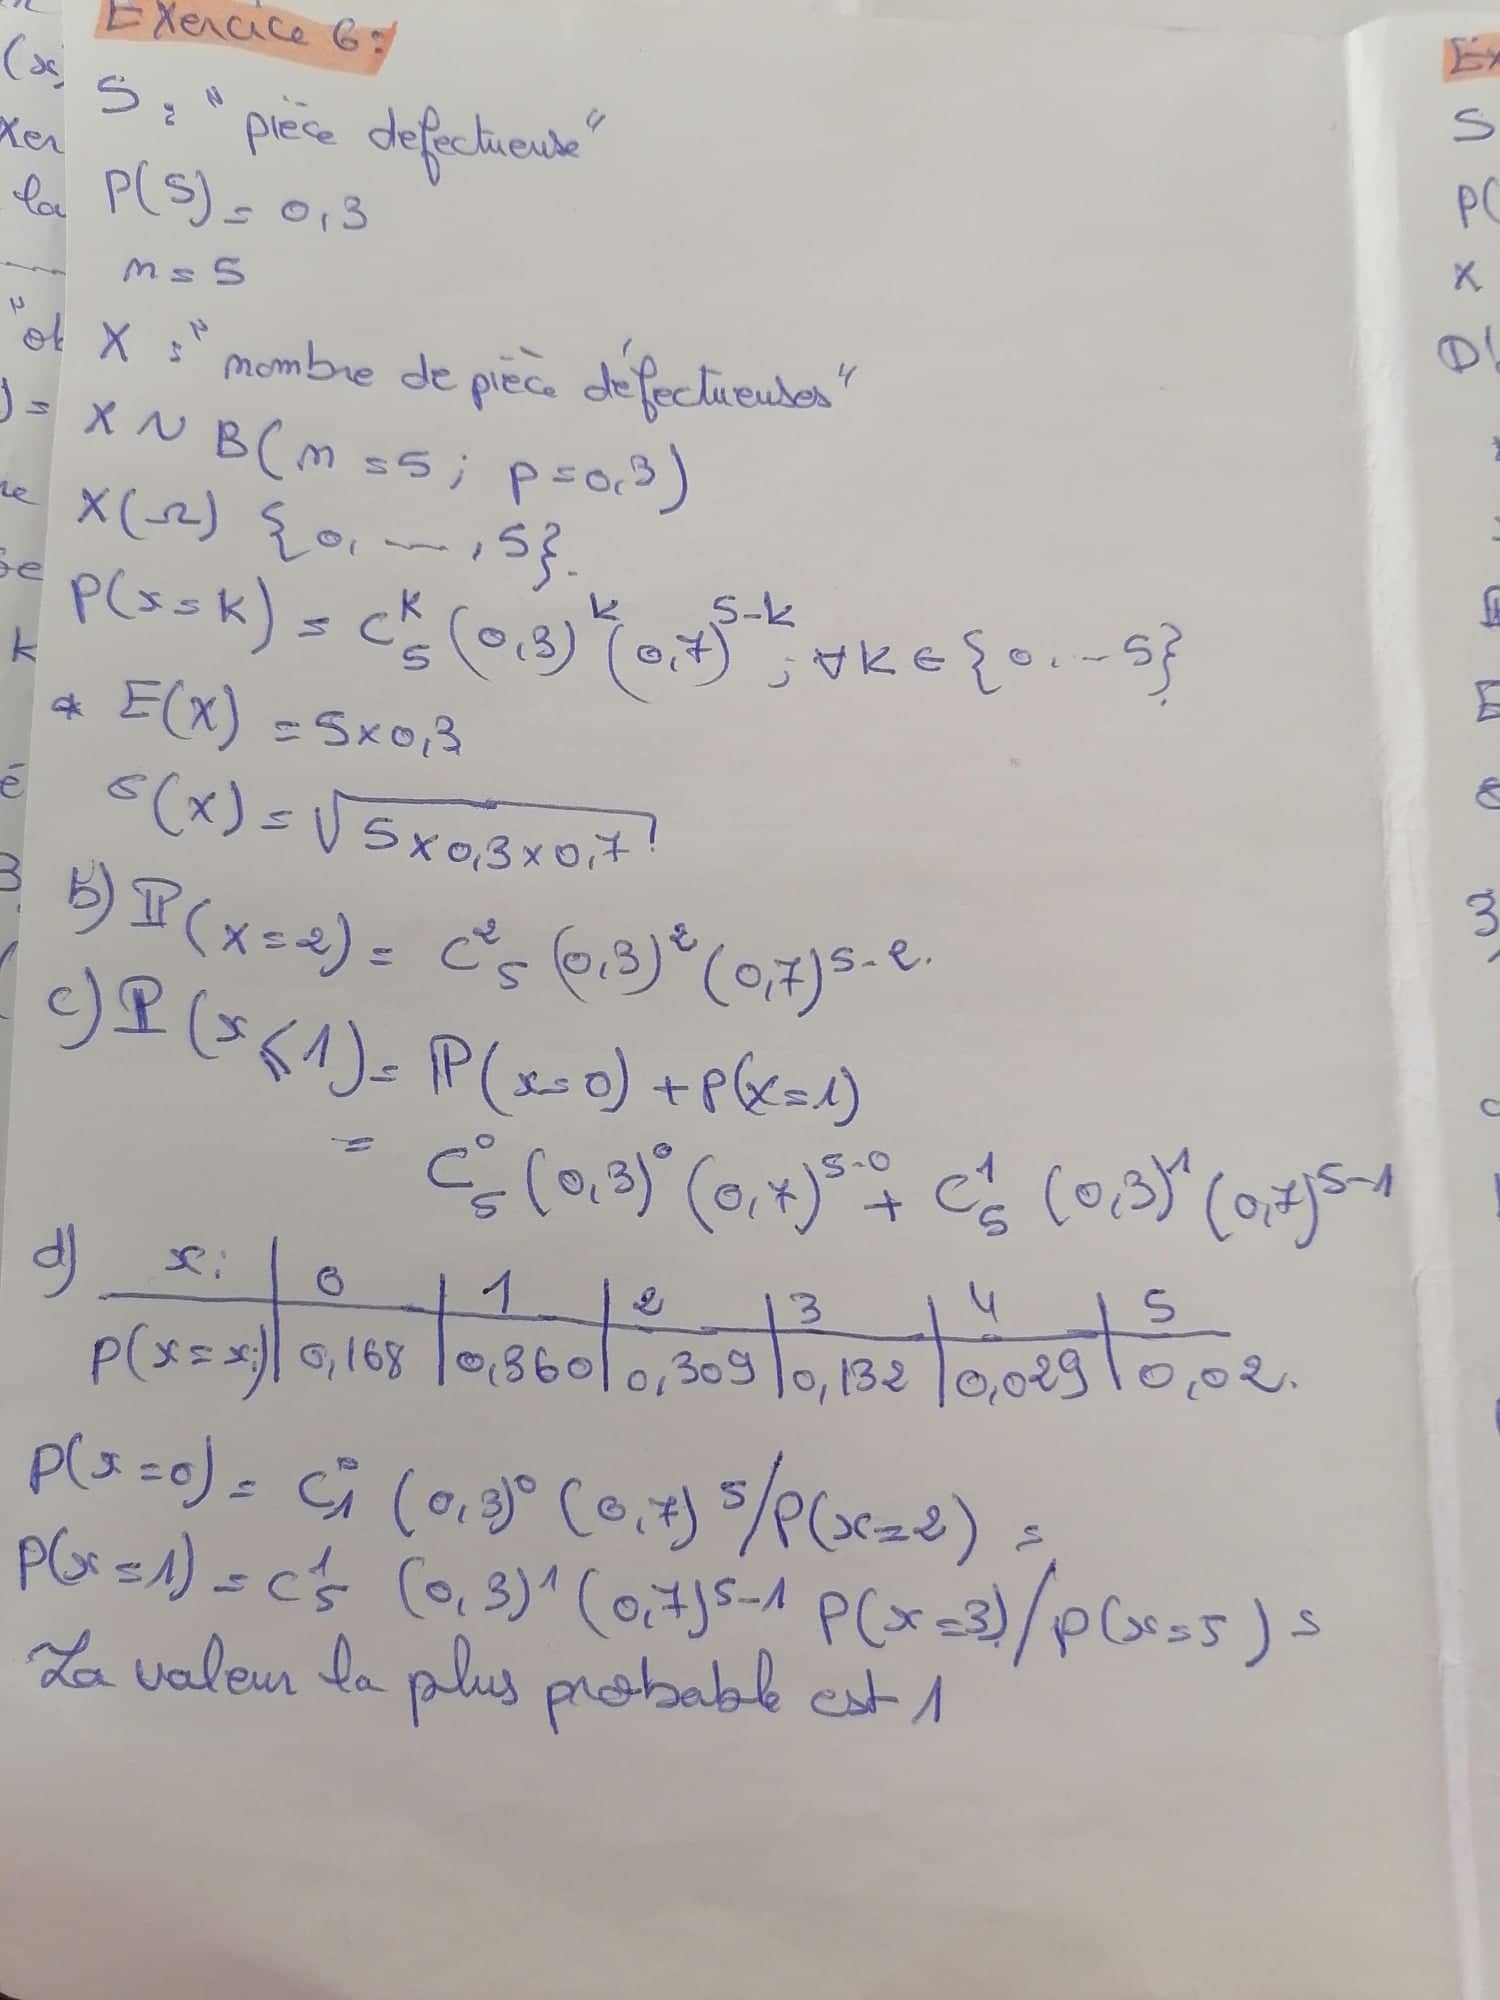 Exercice 6:
S : "pièce defectueuse"
P(S) = 0,3
n = 5
X : "nombre de pièce défectueuses"
X ~ B(n = 5 ; p = 0,3)
X(Ω) {0, — , 5}.
P(x = k) = C₅ᵏ (0,3)ᵏ (0,7)⁵⁻ᵏ ; ∀k ∈ {0, .. 5}
* E(X) = 5 x 0,3
σ(x) = √(5 x 0,3 x 0,7)
b) ℙ(x = 2) = C₅² (0,3)² (0,7)⁵⁻².
c) ℙ(x ⩽ 1) = ℙ(x = 0) + p(x = 1)
= C₅⁰ (0,3)⁰ (0,7)⁵⁻⁰ + C₅¹ (0,3)¹ (0,7)⁵⁻¹
d) xi | 0 | 1 | 2 | 3 | 4 | 5
P(x = xi) | 0,168 | 0,360 | 0,309 | 0,132 | 0,029 | 0,02.
P(x = 0) = C₁⁰ (0,3)⁰ (0,7)⁵ / P(x = 2) =
P(x = 1) = C₅¹ (0,3)¹ (0,7)⁵⁻¹ P(x = 3) / p(x = 5) =
La valeur la plus probable est 1